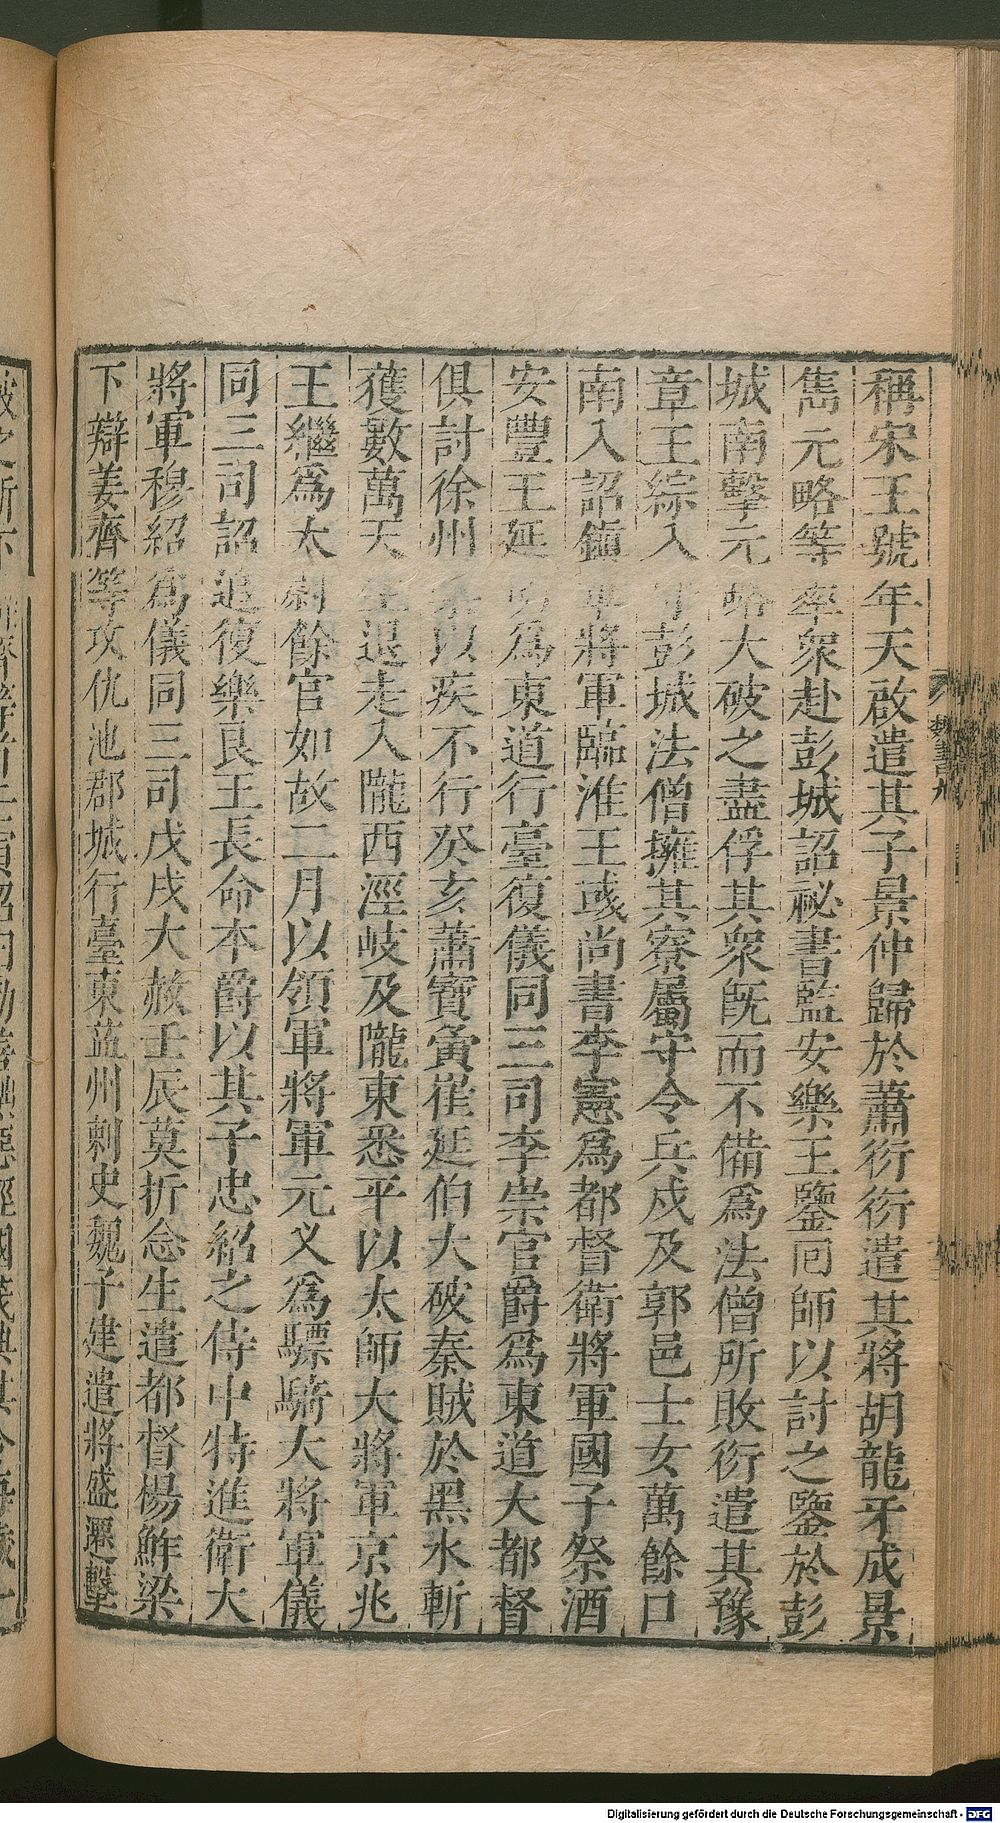 稱宋王號年天啟遣其子景仲歸於蕭衍衍遣其將胡龍牙成景
雋元略等率衆赴彭城詔祕書監安樂王鑒回師以討之鑒於彭
城南擊元略大破之盡俘其衆既而不備爲法僧所敗衍遣其豫
章王綜入彭城法僧擁其寮屬守令兵戍及郭邑士女萬餘口
南入詔鎮軍將軍臨淮王彧尚書李憲爲都督衛將軍國子祭酒
安豐王延明爲東道行臺復儀同三司李崇官爵爲東道大都督
俱討徐州崇以疾不行癸亥蕭寶夤崔延伯大破秦賊於黑水斬
獲數萬天生退走入隴西涇岐及隴東悉平以太師大將軍京兆
王繼爲太尉餘官如故二月以領軍將軍元义爲驃騎大將軍儀
同三司詔追復樂良王長命本爵以其子忠紹之侍中特進衛大
將軍穆紹爲儀同三司戊戌大赦壬辰莫折念生遣都督楊鮓梁
下辯姜齊等攻仇池郡城行臺東益州刺史魏子建遣將盛遷擊
魏書九
Digitalisierung gefördert durch die Deutsche Forschungsgemeinschaft - DFG